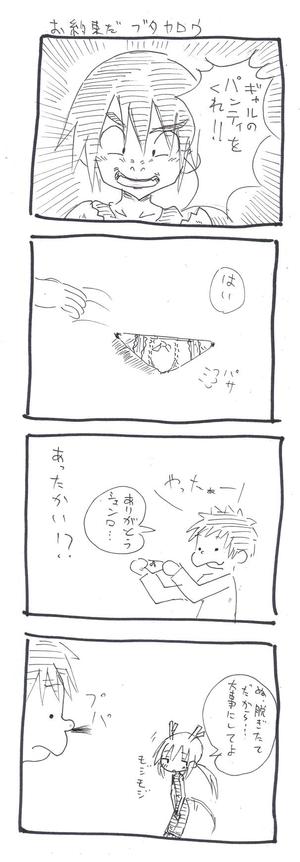 お約束だ ブタヤロウ
ギャルの
パンティを
くれ!!
はい
パサ
やったねー
ありがとう
シェンロン…
あったかい!?
ぬ、脱ぎたて
だから…
大事にしてよ
モジモジ
ブバ